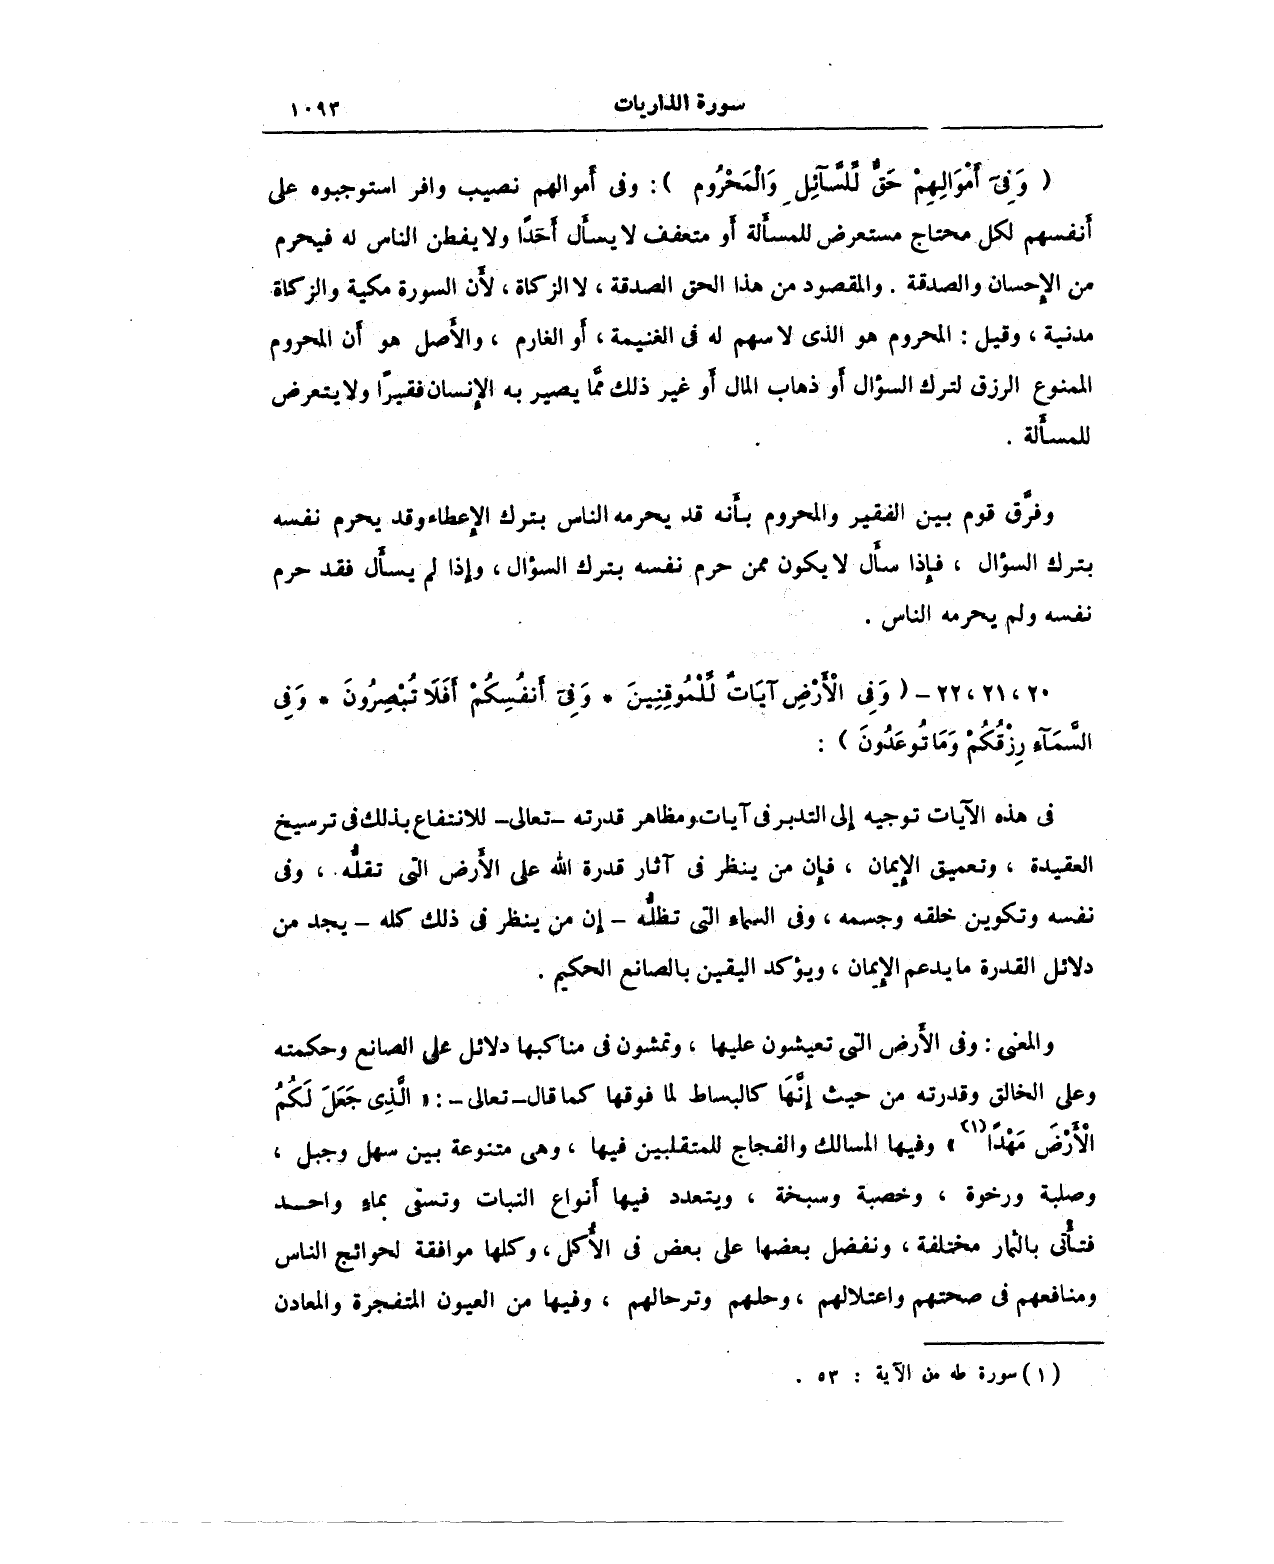 سورة الذاريات ١٠٩٣
( وَفِىٓ أَمْوَالِهِمْ حَقٌّ لِّلسَّآئِلِ وَالْمَحْرُومِ ) : وفى أموالهم نصيب وافر استوجبوه على
أنفسهم لكل محتاج مستعرض للمسألة أو متعفف لا يسأل أحَدًا ولا يفطن الناس له فيحرم
من الإحسان والصدقة . والمقصود من هذا الحق الصدقة ، لا الزكاة ، لأن السورة مكية والزكاة
مدنية ، وقيل : المحروم هو الذى لا سهم له فى الغنيمة ، أو الغارم ، والأصل هو أن المحروم
الممنوع الرزق لترك السؤال أو ذهاب المال أو غير ذلك ممَّا يصير به الإنسان فقيرًا ولا يتعرض
للمسألة .
وفرَّق قوم بين الفقير والمحروم بأنه قد يحرمه الناس بترك الإعطاء وقد يحرم نفسه
بترك السؤال ، فإذا سأل لا يكون ممن حرم نفسه بترك السؤال ، وإذا لم يسأل فقد حرم
نفسه ولم يحرمه الناس .
٢٠ ، ٢١ ، ٢٢ - ( وَفِى الْأَرْضِ آيَاتٌ لِّلْمُوقِنِينَ * وَفِىٓ أَنفُسِكُمْ أَفَلَا تُبْصِرُونَ * وَفِى
السَّمَآءِ رِزْقُكُمْ وَمَا تُوعَدُونَ ) :
فى هذه الآيات توجيه إلى التدبر فى آيات ومظاهر قدرته -تعالى- للانتفاع بذلك فى ترسيخ
العقيدة ، وتعميق الإيمان ، فإن من ينظر فى آثار قدرة الله على الأرض التى تقلُّه ، وفى
نفسه وتكوين خلقه وجسمه ، وفى السماء التى تظلُّه - إن من ينظر فى ذلك كله - يجد من
دلائل القدرة ما يدعم الإيمان ، ويؤكد اليقين بالصانع الحكيم .
والمعنى : وفى الأرض التى تعيشون عليها ، وتمشون فى مناكبها دلائل على الصانع وحكمته
وعلى الخالق وقدرته من حيث إنَّهَا كالبساط لما فوقها كما قال - تعالى - : « الَّذِى جَعَلَ لَكُمُ
الْأَرْضَ مَهْدًا(١) » وفيها المسالك والفجاج للمتقلبين فيها ، وهى متنوعة بين سهل وجبل ،
وصلبة ورخوة ، وخصبة وسبخة ، ويتعدد فيها أنواع النبات وتسقى بماءٍ واحد
فتأتى بالثمار مختلفة ، ونفضل بعضها على بعض فى الأُكل ، وكلها موافقة لحوائج الناس
ومنافعهم فى صحتهم واعتلالهم ، وحلهم وترحالهم ، وفيها من العيون المتفجرة والمعادن
(١) سورة طه من الآية : ٥٣ .